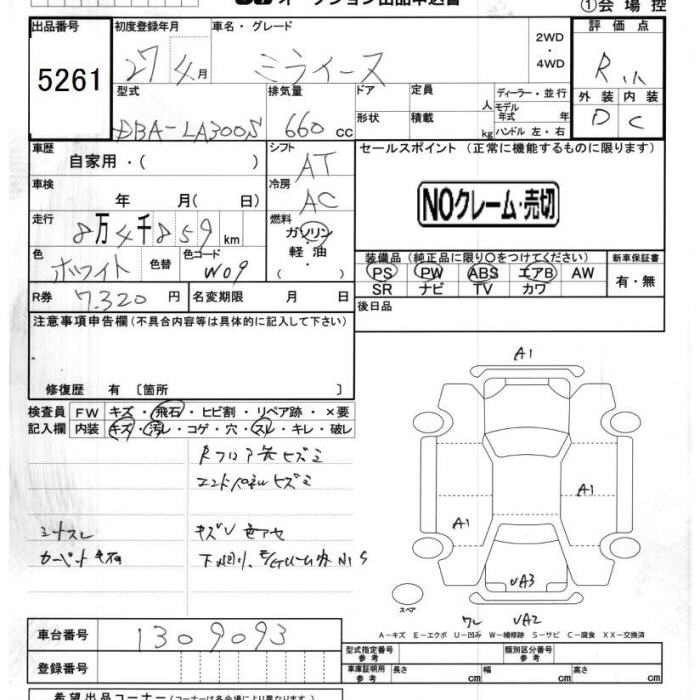 オークション出品申込書
①会場控
出品番号
5261
初度登録年月
27年4月
車名・グレード
ミライース
2WD
・
4WD
評価点
R
外装 内装
D C
型式
DBA-LA300S
排気量
660 cc
ドア
形状
定員
人
積載
kg
ディーラー・並行
モデル年式 年
ハンドル 左・右
車歴
自家用・( )
シフト
AT
セールスポイント (正常に機能するものに限ります)
NOクレーム・売切
車検
年 月(日)
冷房
AC
走行
8万4千859km
燃料
ガソリン
軽油
( )
色
ホワイト
色替
色コード
W09
装備品 (純正品に限り○をつけてください)
PS PW ABS エアB AW
SR ナビ TV カワ
新車保証書
有・無
R券
7,320円
名変期限 月 日
後日品
注意事項申告欄(不具合内容等は具体的に記入して下さい)
修復歴 有 〔箇所 〕
検査員
記入欄
FW キズ・飛石・ヒビ割・リペア跡・×要
内装 キズ・汚レ・コゲ・穴・スレ・キレ・破レ
Rフロア ヒズミ
エンドパネルヒズミ
シートスレ
キズU 色アセ
A1
A1
A1
UA3
UA2
スペア
A-キズ E-エクボ U-凹み W-補修跡 S-サビ C-腐食 XX-交換済
車台番号
1309093
登録番号
型式指定番号
参考
類別区分番号
参考
車庫証明用
参考
長さ cm
幅 cm
高さ cm
希望出品コーナー(コーナーは各会場により異なります)